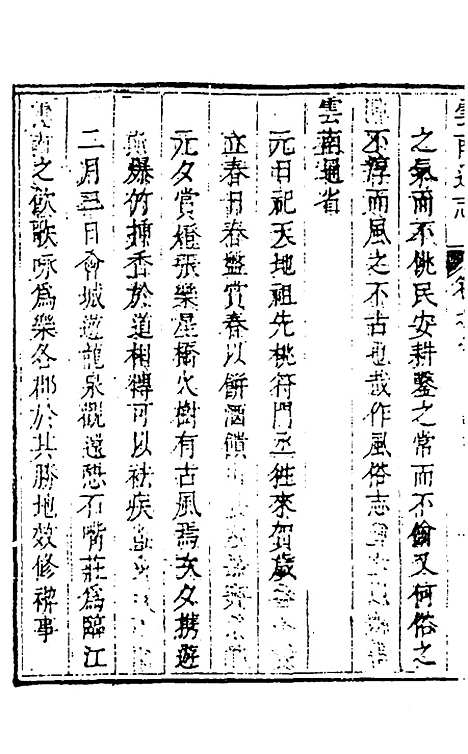 雲南通志 卷之
之氣而不佻民安耕鑿之常而不偷又何俗之
不淳而風之不古也哉作風俗志
雲南通省
元日祀天地祖先桃符門丞徃來賀歲
立春日春盤賞春以餅酒饋
元夕賞燈張樂星橋火樹有古風焉次夕携遊
爆竹揷香於道相傳可以祛疾
二月三日會城遊龍泉觀還憩石嘴莊爲臨江
之飲歌咏爲樂各郡於其勝地效修禊事